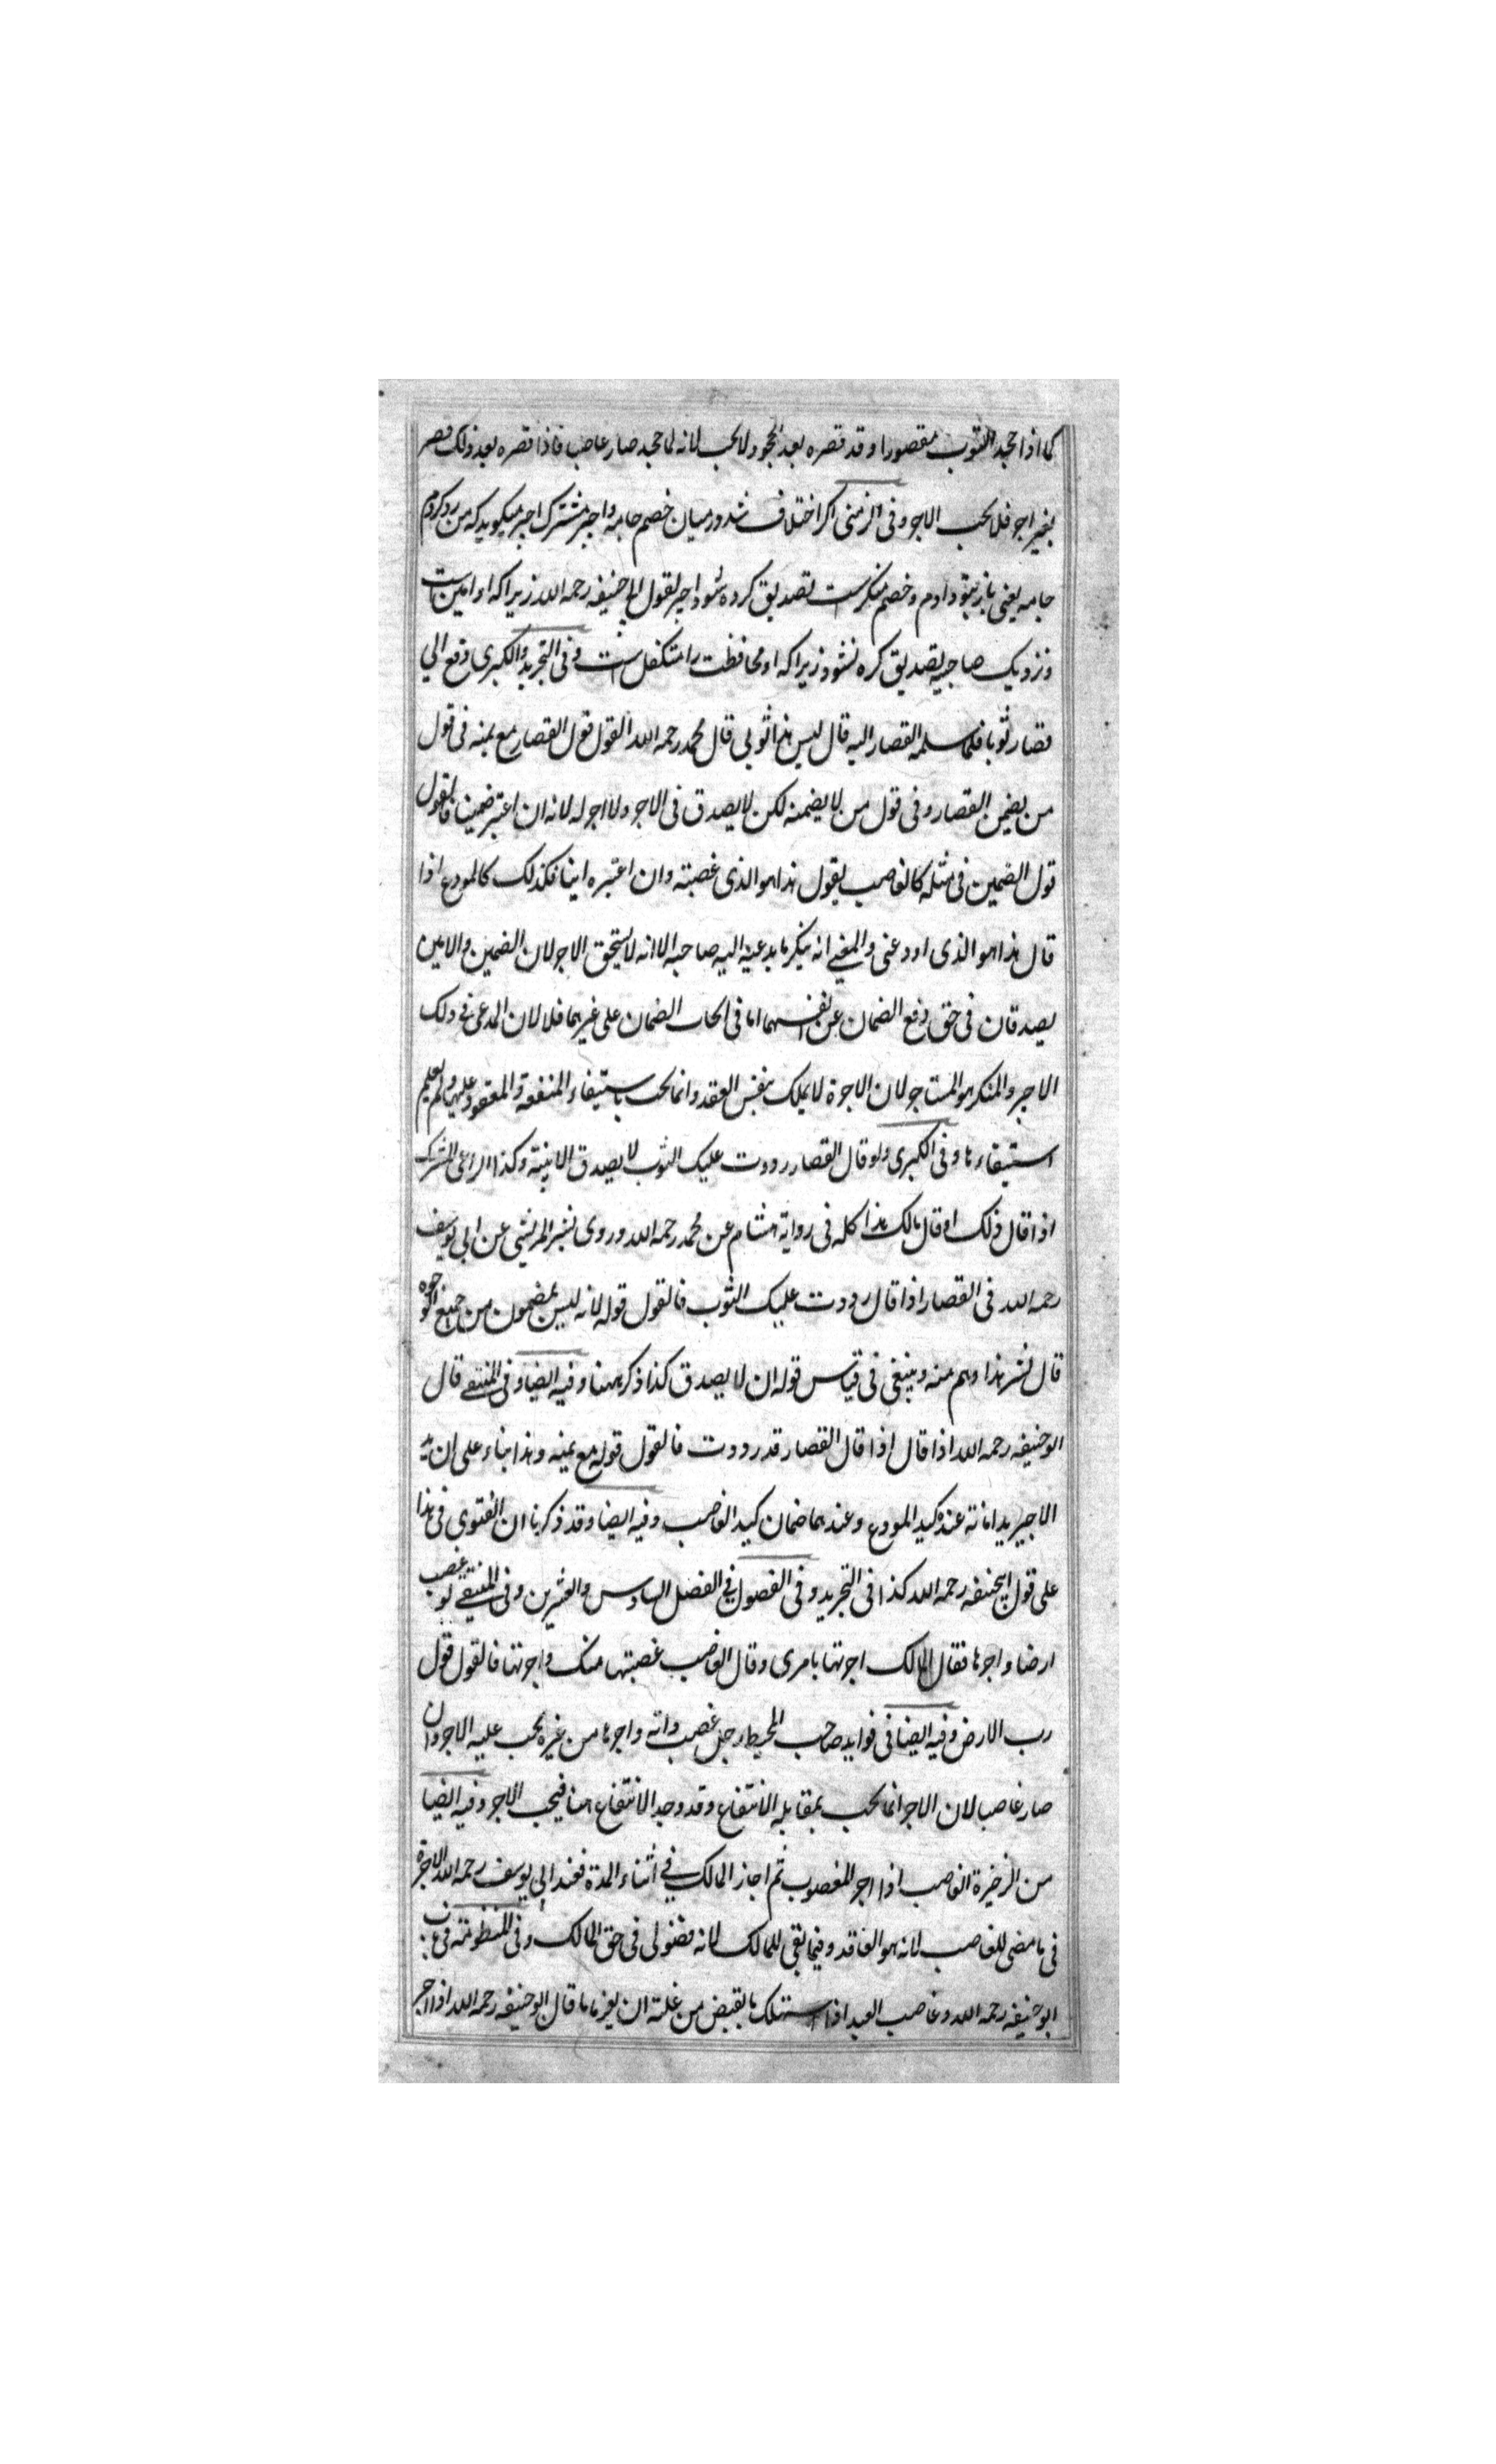 كما اذا جحد الثوب مقصورا و قد قصره بعد الجحود لا يجب لانه لما جحد صار غاصبا فاذا قصره بعد ذلك قصر
بغير اجر فلا يجب الاجر و فى اكر اختلاف شد درميان خصم جامه و اجير مشترك اجير ميكويد كه من رد كردم
جامه يعنى باز بتو دادم و خصم منكرست تصديق كرده شود اجير بقول ابى حنيفه رحمه الله زيراكه او امين است
و نزديك صاحبيه تصديق كره نشود زيراكه او محافظت را متكفل است و فى التجريد و الكبرى دفع الي
قصار ثوبا فلما سلمه القصار اليه قال ليس هذا ثوبى قال محمد رحمه الله القول قول القصار مع يمينه فى قول
من يضمن القصار و فى قول من لا يضمنه لكن لا يصدق فى الاجر و لا اجر له لانه ان اعتبر ضمينا فالقول
قول الضمين فى مثله كالغاصب يقول هذا هو الذى غصبته و ان اعتبره امينا فكذلك كالمودع اذا
قال هذا هو الذى اودعنى و المعنے انه ينكر ما يدعيه اليه صاحبه الا انه لا يستحق الاجر لان الضمين و الامين
يصدقان فى حق دفع الضمان عن انفسهما اما فى ايجاب الضمان على غيرهما فلا لان المدعى فى ذلك
الاجير و المنكر هو المستاجر لان الاجرة لا يملك بنفس العقد و انما يجب باستيفاء المنفعة و المعقود عليها و لم يعلم
استيفاءها و فى الكبرى و لو قال القصار رددت عليك الثوب لا يصدق الا ببينة و كذا الراعى المشترك
اذا قال ذلك او قال هالك هذا كله فى رواية هشام عن محمد رحمه الله و روى بشر المريسى عن ابى يوسف
رحمه الله فى القصار اذا قال رددت عليك الثوب فالقول قوله لانه ليس بمضمون من جميع الوجوه
قال بشر هذا وهم منه و ينبغى فى قياس قوله ان لا يصدق كذا ذكر ههنا و فيه ايضا و فى المنتقے قال
ابو حنيفه رحمه الله اذا قال اذا قال القصار قد رددت فالقول قوله مع يمينه و هذا بناء على ان يد
الاجير يد امانة عنده كيد المودع و عندهما ضمان كيد الغاصب و فيه ايضا و قد ذكرنا ان الفتوى فى هذا
على قول ابيحنيفه رحمه الله كذا فى التجريد و فى الفصول فى الفصل السادس و العشرين و فى المنتقے لو غصب
ارضا و اجرها فقال المالك اجرتها بامرى و قال الغاصب غصبتها منك و اجرتها فالقول قول
رب الارض و فيه ايضا فى فوايد صاحب المحيط رجل غصب دابه و اجرها من غيره يجب عليه الاجر و ان
صار غاصبا لان الاجر انما يجب بمقابلة الانتفاع و قد وجد الانتفاع هنا فيجب الاجر و فيه ايضا
من الذخيرة الغاصب اذا اجر المغصوب ثم اجاز المالك فے اثناء المدة فعند ابى يوسف رحمه الله الاجرة
فى ما مضى للغاصب لانه هو العاقد و فيما بقى للمالك لانه فضولى فى حق المالك و فى المنظومة فى
ابو حنيفه رحمه الله و غاصب العبد اذا استهلك ما يقبض من غلته ان يغرما قال ابو حنيفه رحمه الله اذا اجر